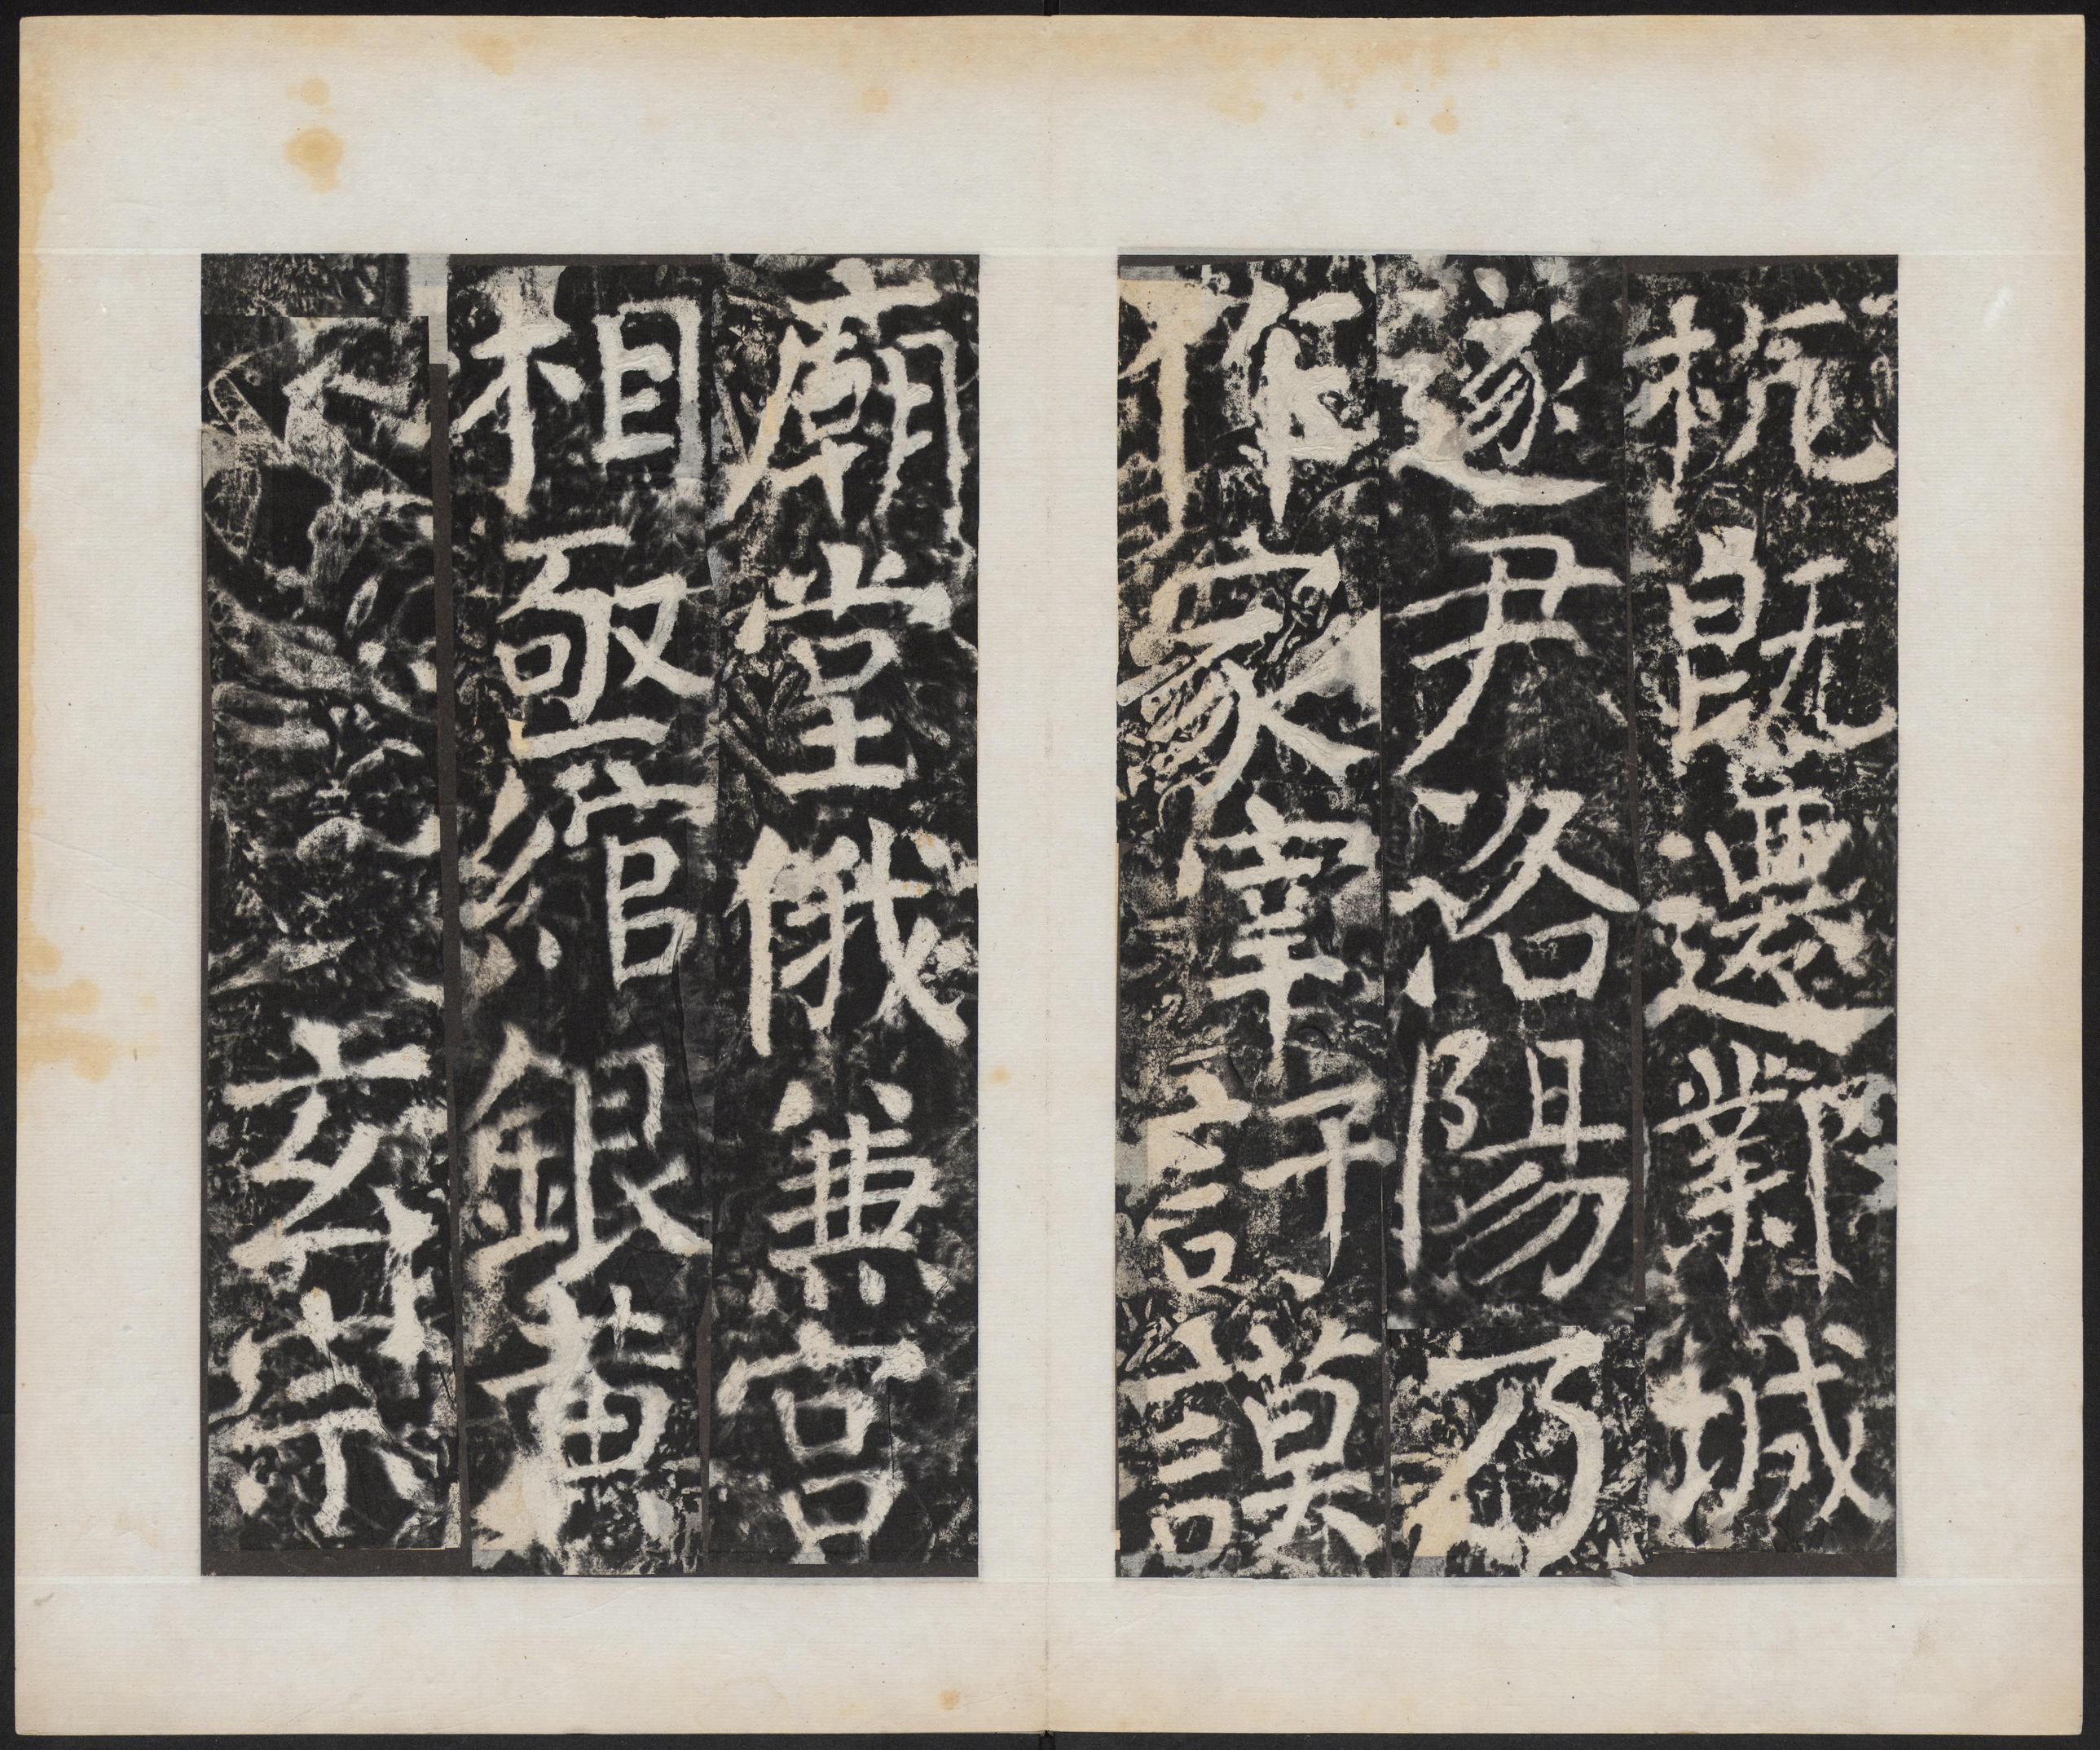 杭既遷鄴城
遂尹洛陽乃
作冢宰訏謨
廟堂俄兼宮
相亟綰銀黃
玄宗